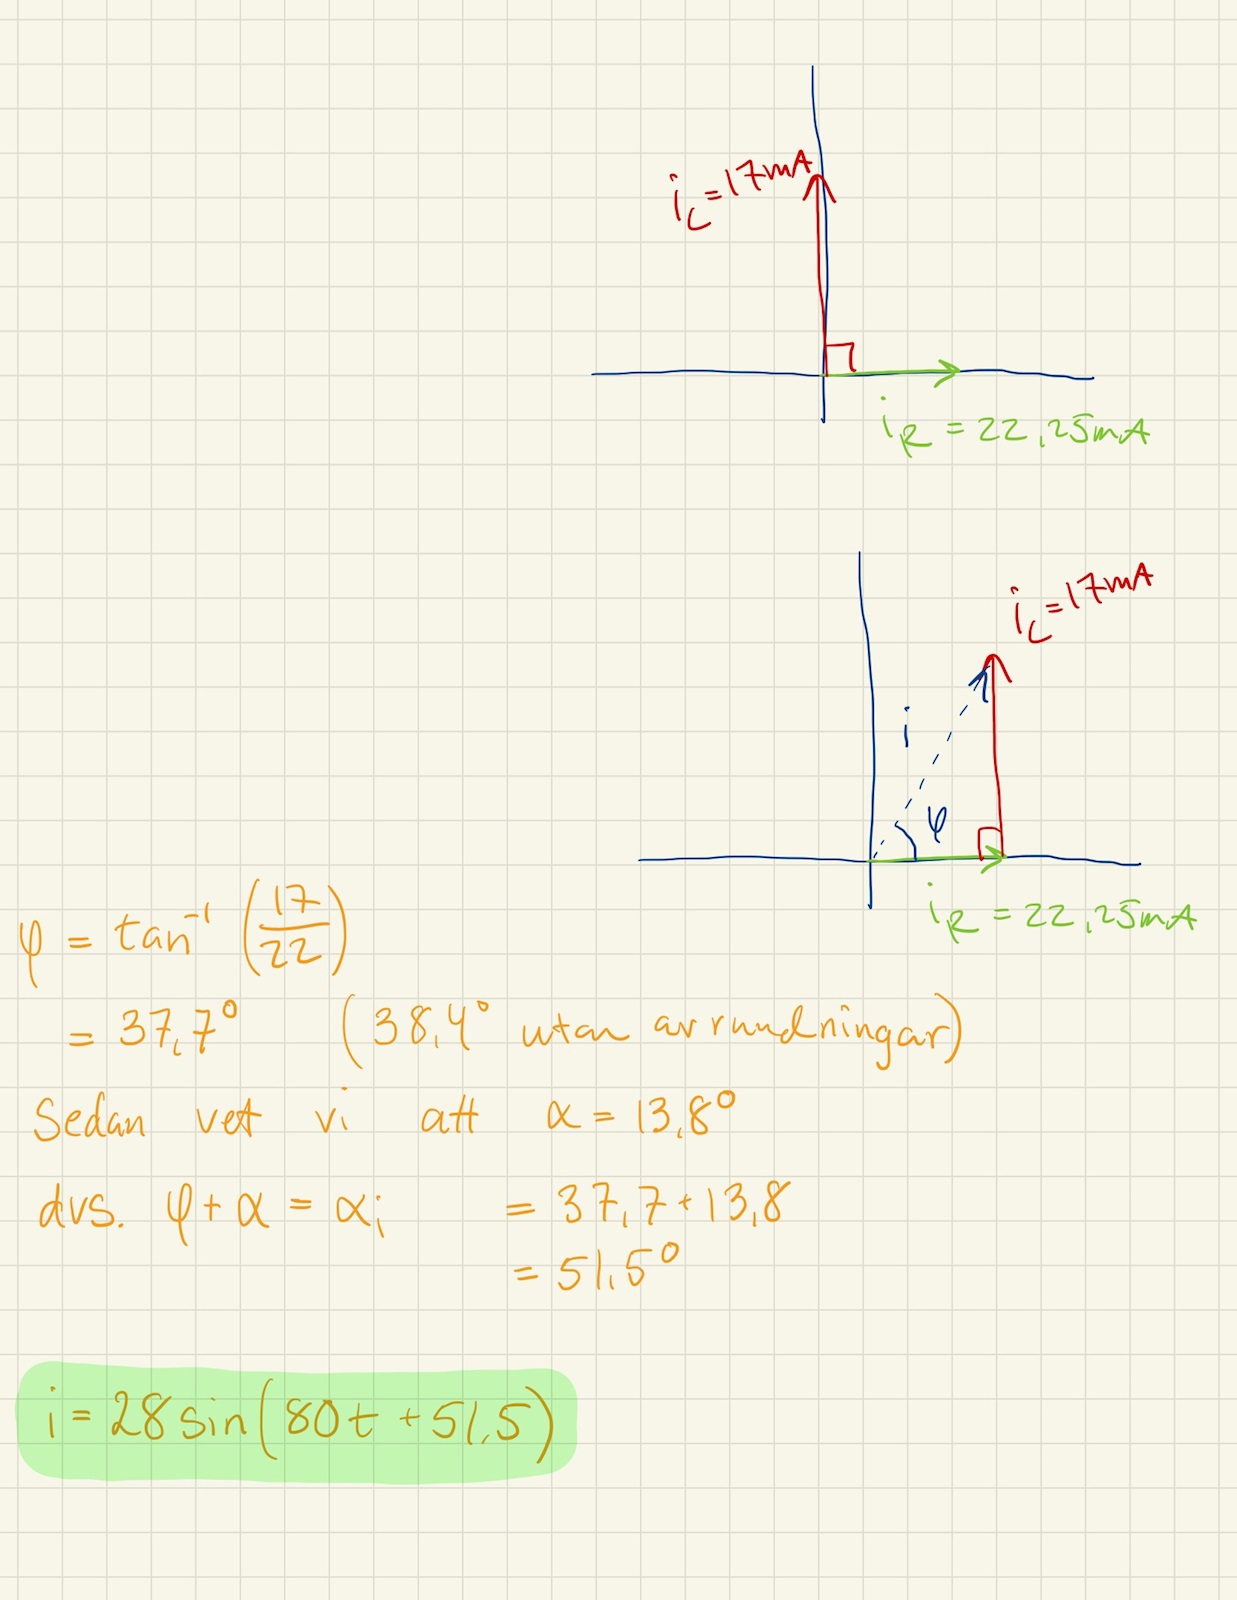 i_C = 17mA
i_R = 22,25mA
i_C = 17mA
i
φ
i_R = 22,25mA
φ = tan⁻¹ (17/22)
= 37,7° (38,4° utan avrundningar)
Sedan vet vi att α = 13,8°
dvs. φ + α = α_i = 37,7 + 13,8
= 51,5°
i = 28 sin(80t + 51,5)